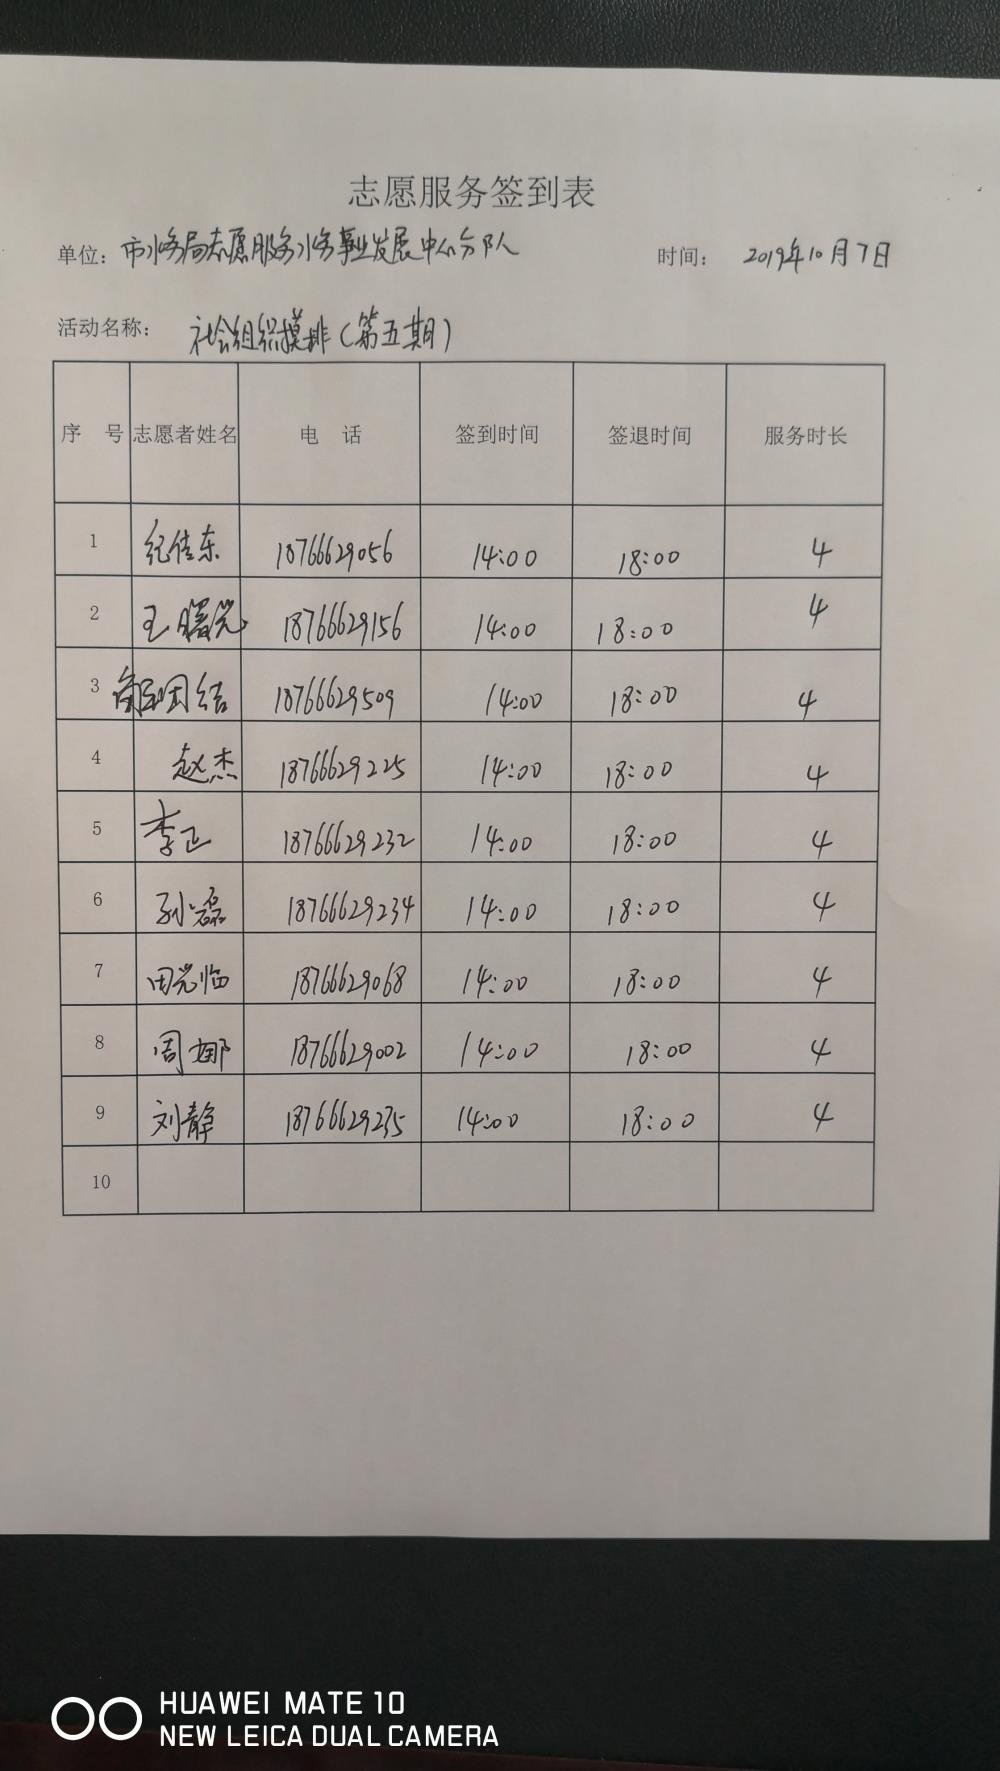 志愿服务签到表
单位：市水务局志愿服务水务事业发展中心分队 时间：2019年10月7日
活动名称：社会组织摸排（第五期）
序 号 志愿者姓名 电 话 签到时间 签退时间 服务时长
1 纪佳东 18766629056 14:00 18:00 4
2 王曙光 18766629156 14:00 18:00 4
3 团结 18766629509 14:00 18:00 4
4 赵杰 18766629225 14:00 18:00 4
5 李正 18766629232 14:00 18:00 4
6 孙磊 18766629234 14:00 18:00 4
7 田光临 18766629068 14:00 18:00 4
8 周娜 18766629002 14:00 18:00 4
9 刘静 18766629235 14:00 18:00 4
10
HUAWEI MATE 10
NEW LEICA DUAL CAMERA